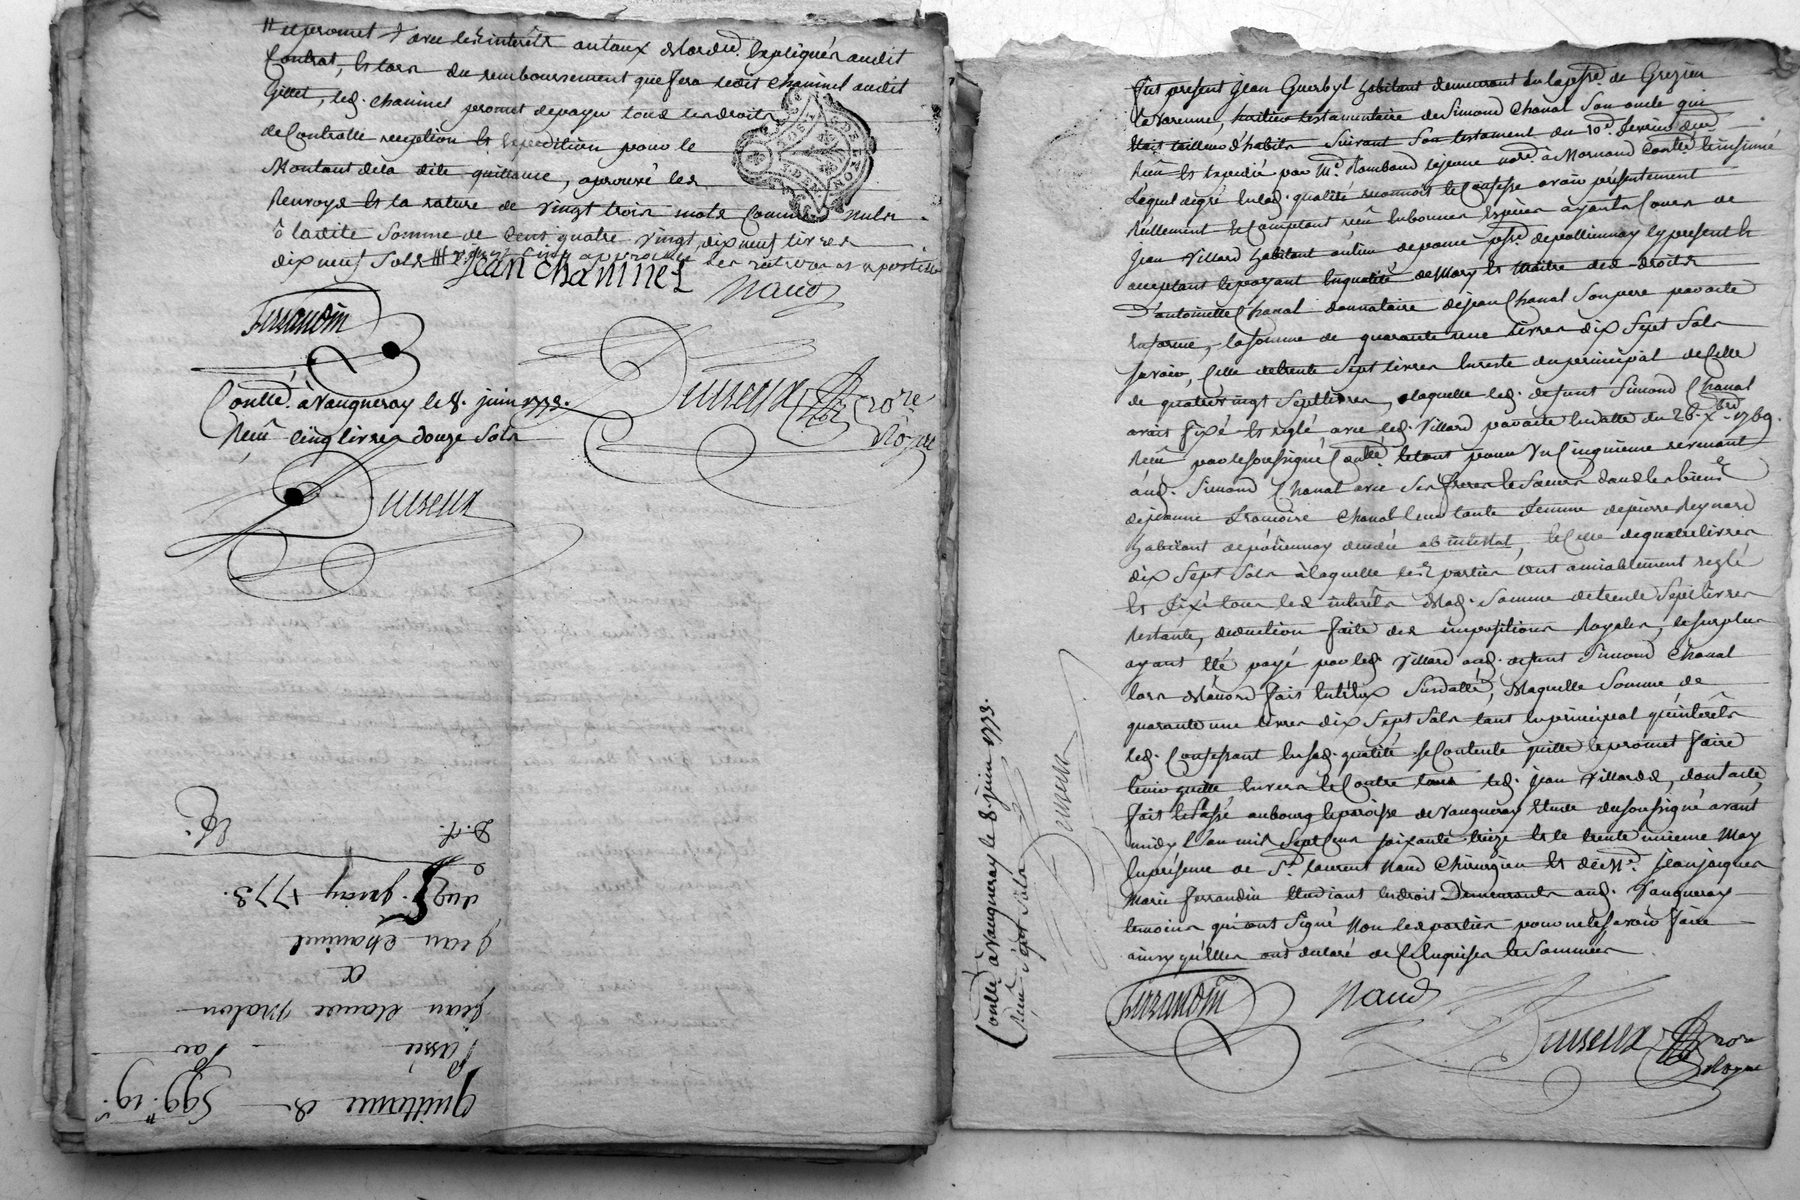 et promet avec les interêts au taux de l'ordce. expliqués audit
Contrat, et lors du remboursement que fera ledit chaninel audit
Gillet, led. chaninel promet de payer tous les droits
de Controlle reception et expedition pour le
Montant de la dite quittance, aprouvé les
Renvoys et la rature de vingt trois mots Comme nuls
à ladite somme de Cent quatre vingt dix neuf livres
dix neuf sols
jean Chaninel
Naud
Ferrandin
Contllé. à Vaugneray le 8. juin 1773.
Reçu Cinq livres douze sols
Dusseux
Dusseux
nore
Royal
quittance de 599.tt 19.s
Passée Par
jean claude Maton
a
jean chaninel
du 5. juin 1773.
D. f.
Ex.
Fut present jean Guerbyt habitant demeurant en la psse de Grezieu
la Varenne, heritier testamentaire de Simond Chanal son oncle qui
étoit tailleur d'habits suivant son testament du 10e. fevrier dernier
Reçu et expedié par Me. Rambaud le jeune nore. à Mornand Contllé. et insinué
Lequel de gré en lad. qualité reconnoit et Confesse avoir présentement
Réellement et Comptant reçu en bonnes Espèces ayants Cours de
jean Villard habitant au lieu de psse. de pollionnay cy present et
acceptant et payant en qualité de Mary et Maitre des droits
d'antoinette Chanal donnataire de jean Chanal son pere par acte
en forme, la somme de quarante une livres dix sept sols
savoir, Celle de trente sept livres en reste du principal de Celle
de quatre vingt sept livres, a laquelle led. defunt Simond Chanal
avait fixé et reglé avec led. Villard par acte en datte du 26. Xbre 1769.
Reçu par le soussigné Contllé. et tant pour un Cinquieme revenant
aud. Simond Chanal avec ses freres et sœurs dans les biens
de jeanne françoise Chanal leur tante femme de pierre Reynard
habitant de pollionnay decedée ab intestat, et Celle de quatre livres
dix sept sols à laquelle les parties ont amiablement reglé
et fixé tous les interêts de lad. somme de trente sept livres
restante, deduction faite des impositions Royales, le surplus
ayant été payé par led. Villard aud. defunt Simond Chanal
lors de l'acord fait entr'eux susdatté, de laquelle somme de
quarante une livres dix sept sols tant en principal qu'interêts
led. Confessant en sad. qualité se Contente quitte et promet faire
tenir quitte envers et Contre tous led. jean Villard, dont acte
fait et passé au bourg et paroisse de Vaugneray Etude du soussigné avant
midy l'an mil sept Cens soixante treize et le trente unieme May
en présence de Sr. laurent Naud Chirurgien et de Me. jean jacques
Marie Ferrandin Etudiant en droit Demeurants aud. Vaugneray
temoins qui ont signé Non les parties pour ne le savoir faire
ainsy qu'elles ont declaré de Ce Enquises et sommées
Ferrandin
Naud
Dusseux
nore
Royal
Contllé. à Vaugneray le 8. juin 1773.
Reçu sept sols
Dusseux